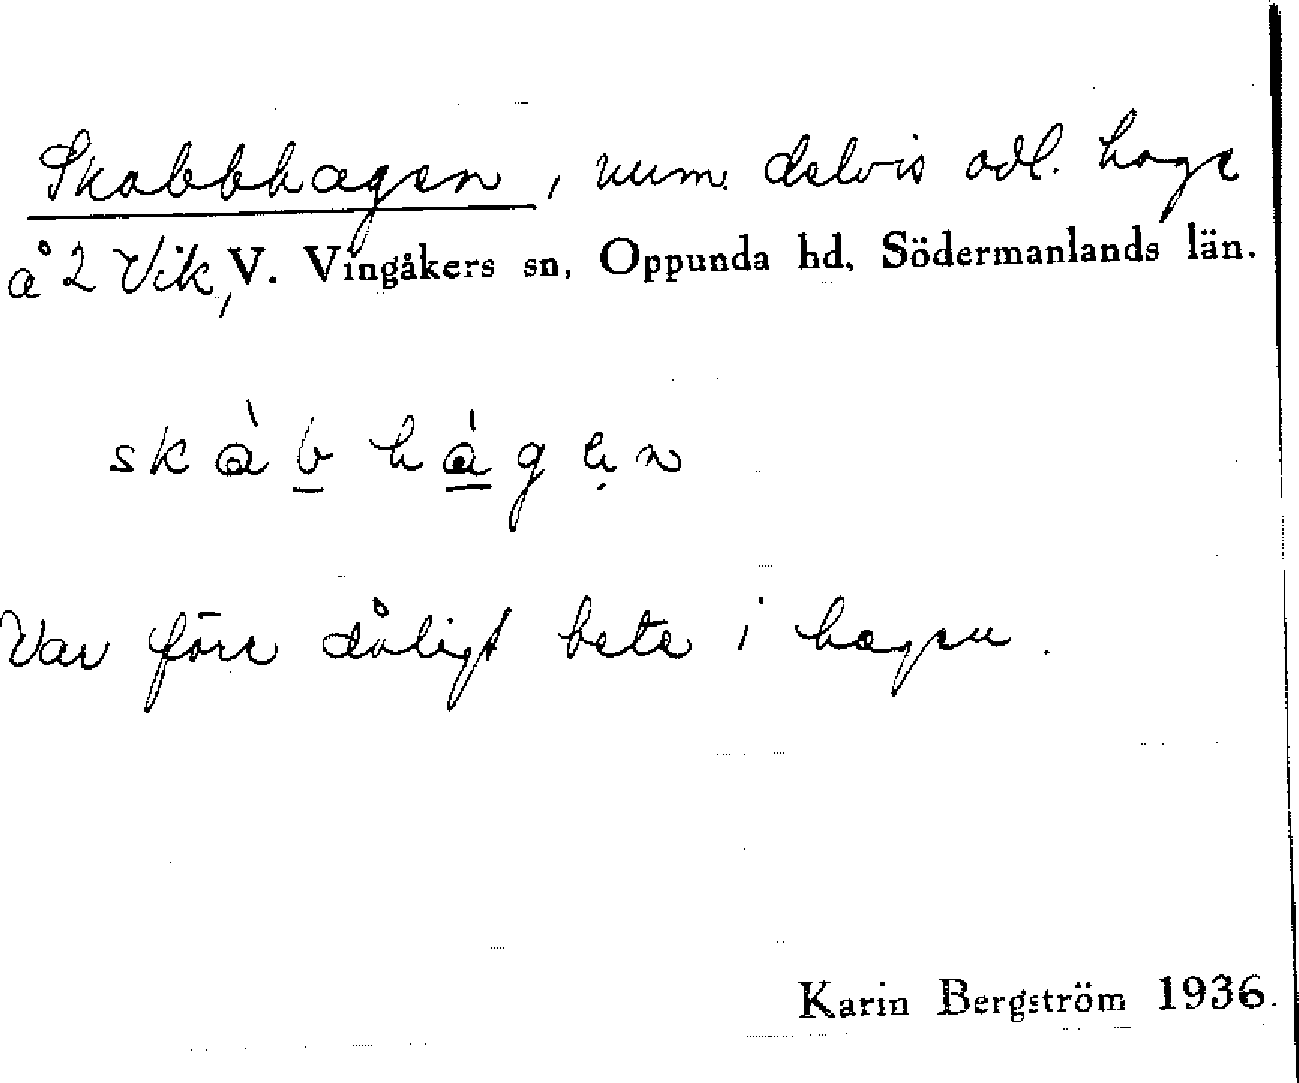 Skabbhagen, num. delvis odl. hage
å 2 Vik, V. Vingåkers sn, Oppunda hd, Södermanlands län.
skàb̲hа̲̀gẹn
Var förr dåligt bete i hagen.
Karin Bergström 1936.